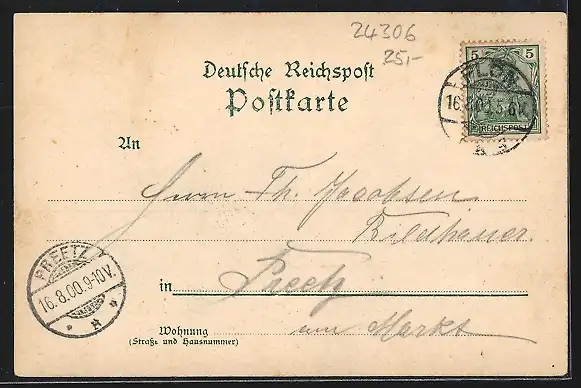 24306
25,-
Deutsche Reichspost
Postkarte
5 5
REICHSPOST
PLÖN
16.8.00.5-6V.
An
Herrn Th. Jacobsen
Bildhauer.
PREETZ
16.8.00.9-10V.
in Preetz
Wohnung am Markt
(Straße und Hausnummer)